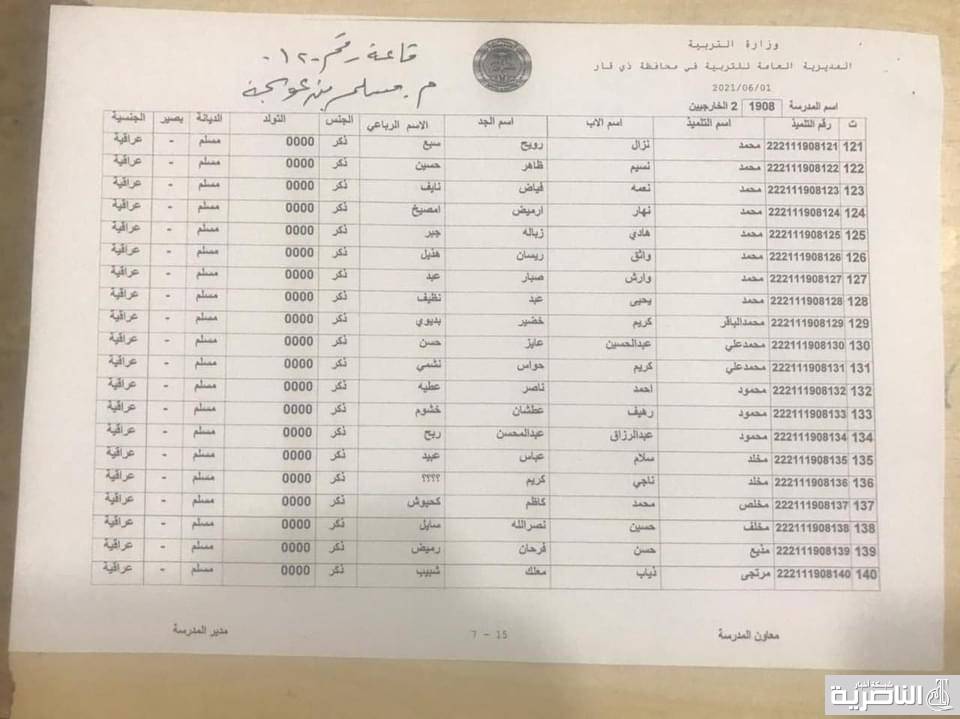 وزارة التربية
المديرية العامة للتربية في محافظة ذي قار
2021/06/01
قاعة رقم ١٢
م. مسلم
اسم المدرسة 1908 2 الخارجيين
ت رقم التلميذ اسم التلميذ اسم الاب اسم الجد الاسم الرباعي الجنس التولد الديانة بصير الجنسية
121 222111908121 محمد نزال رويح سبع ذكر 0000 مسلم - عراقية
122 222111908122 محمد نسيم ظاهر حسين ذكر 0000 مسلم - عراقية
123 222111908123 محمد نعمه فياض نايف ذكر 0000 مسلم - عراقية
124 222111908124 محمد نهار ارميض امصيخ ذكر 0000 مسلم - عراقية
125 222111908125 محمد هادي زباله جبر ذكر 0000 مسلم - عراقية
126 222111908126 محمد واثق ريسان هذيل ذكر 0000 مسلم - عراقية
127 222111908127 محمد وارش صبار عبد ذكر 0000 مسلم - عراقية
128 222111908128 محمد يحيى عبد نظيف ذكر 0000 مسلم - عراقية
129 222111908129 محمدالباقر كريم خضير بديوي ذكر 0000 مسلم - عراقية
130 222111908130 محمدعلي عبدالحسين عايز حسن ذكر 0000 مسلم - عراقية
131 222111908131 محمدعلي كريم حواس نشمي ذكر 0000 مسلم - عراقية
132 222111908132 محمود احمد ناصر عطيه ذكر 0000 مسلم - عراقية
133 222111908133 محمود رهيف عطشان خشوم ذكر 0000 مسلم - عراقية
134 222111908134 محمود عبدالرزاق عبدالمحسن ربح ذكر 0000 مسلم - عراقية
135 222111908135 مخلد سلام عباس عبيد ذكر 0000 مسلم - عراقية
136 222111908136 مخلد ناجي كريم ؟؟؟؟ ذكر 0000 مسلم - عراقية
137 222111908137 مخلص محمد كاظم كحيوش ذكر 0000 مسلم - عراقية
138 222111908138 مخلف حسين نصرالله سايل ذكر 0000 مسلم - عراقية
139 222111908139 مذيع حسن فرحان رميض ذكر 0000 مسلم - عراقية
140 222111908140 مرتجى ذياب معلك شبيب ذكر 0000 مسلم - عراقية
معاون المدرسة 7 - 15 مدير المدرسة
شبكة أخبار
الناصرية